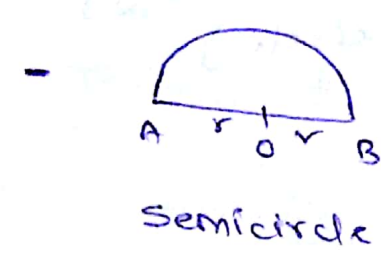 A r O r B
Semicircle